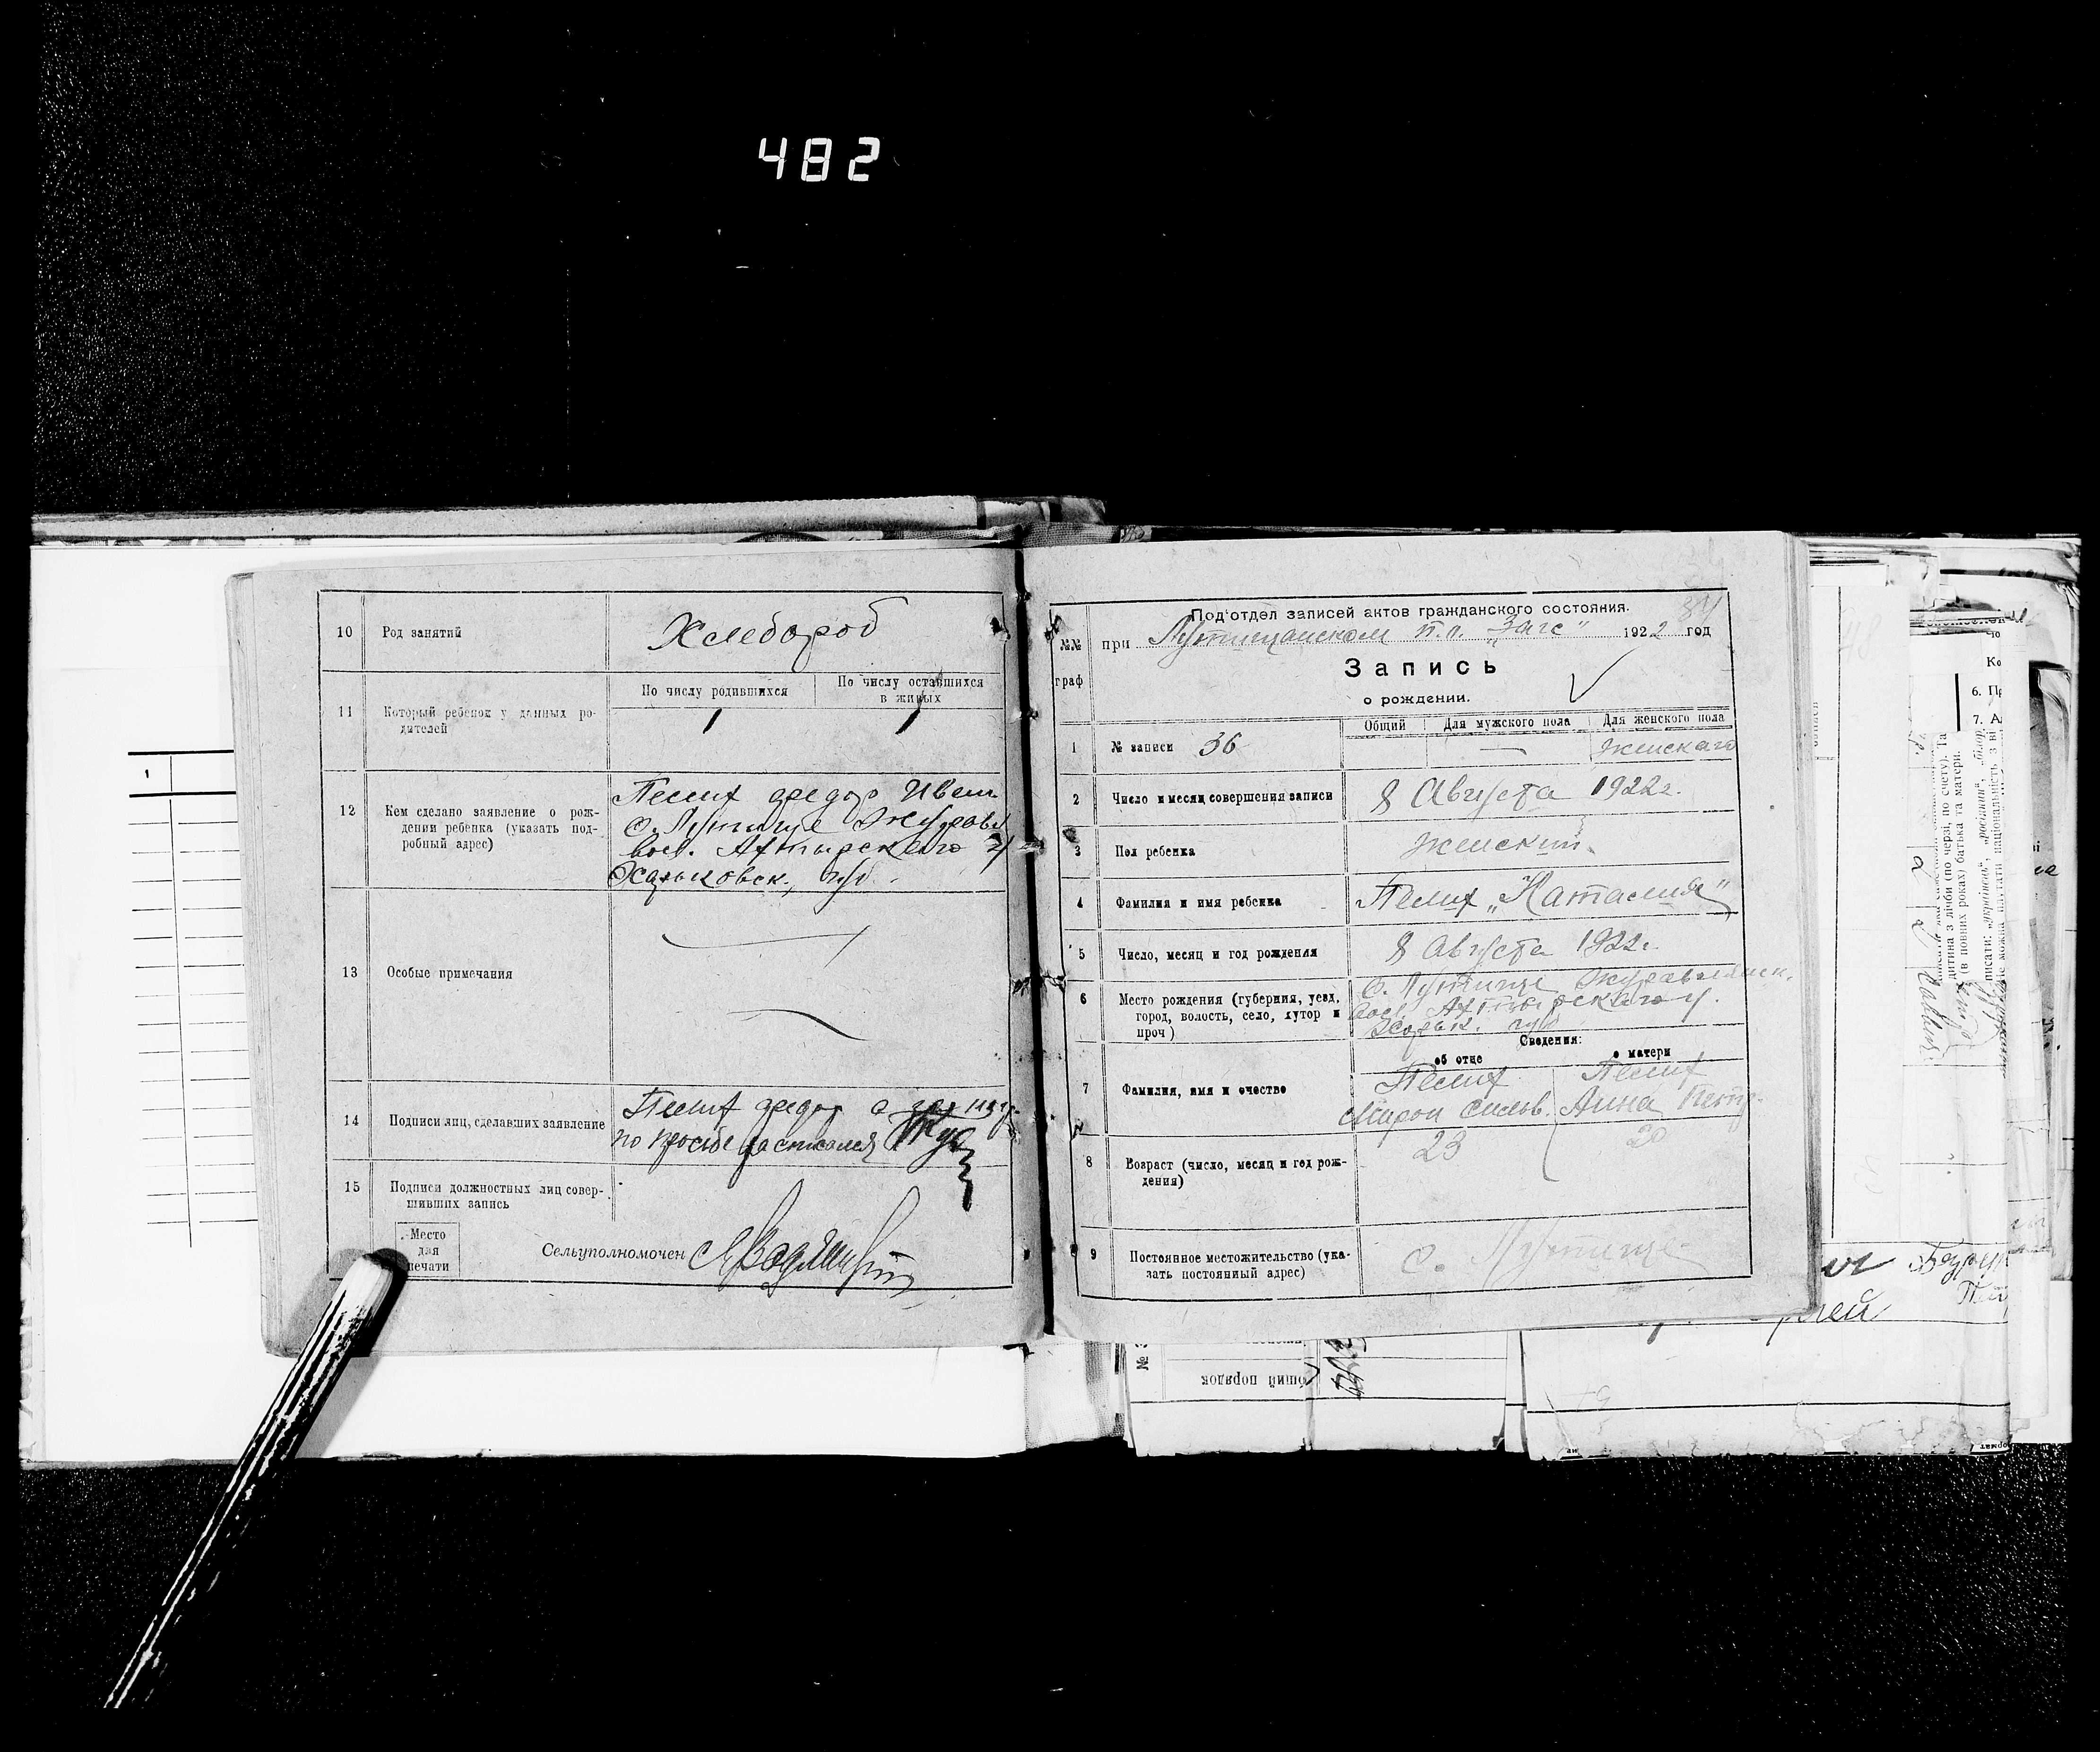 482
10 Род занятий Хлебороб
По числу родившихся По числу оставшихся
в живых
11 Который ребенок у данных ро-
дителей
1 1
12 Кем сделано заявление о рож-
дении ребенка (указать под-
робный адрес)
Пелих Федор Иван
с. Лутище Журавл
вол. Ахтырского у
Харьковск. губ.
13 Особые примечания
14 Подписи лиц, сделавших заявление
Пелих Федор а за негр.
по просьбе расписался
15 Подписи должностных лиц совер-
шивших запись
Место
для
печати
Сельуполномочен
Под‘отдел записей актов гражданского состояния. 34
при Лутищанском п.п. „Загс“ 1922 год
№№
граф
Запись
о рождении.
Общий Для мужского пола Для женского пола
1 № записи 36 — женскаго
2 Число и месяц совершения записи 8 Августа 1922 г.
3 Пол ребенка женский.
4 Фамилия и имя ребенка Пелих „Наталия“
5 Число, месяц и год рождения 8 Августа 1922 г.
6 Место рождения (губерния, уезд,
город, волость, село, хутор и
проч)
с. Лутище Журавлянск.
вол. Ахтырскаго у.
Харьк. губ
Сведения:
об отце о матери
7 Фамилия, имя и очество
Пелих Пелих
Мирон Силов. Анна Петр.
8 Возраст (число, месяц и год рож-
дения)
23 20
9 Постоянное местожительство (ука-
зать постоянный адрес)
с. Лутище
1
6.
7.
общий порядок